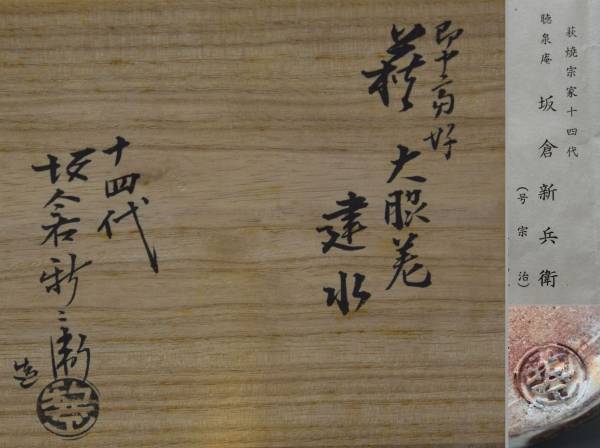 即中斎好
萩 大脇差
建水
十四代
坂倉新兵衛
造
萩焼宗家十四代
聴泉庵 坂倉新兵衛
(号宗治)